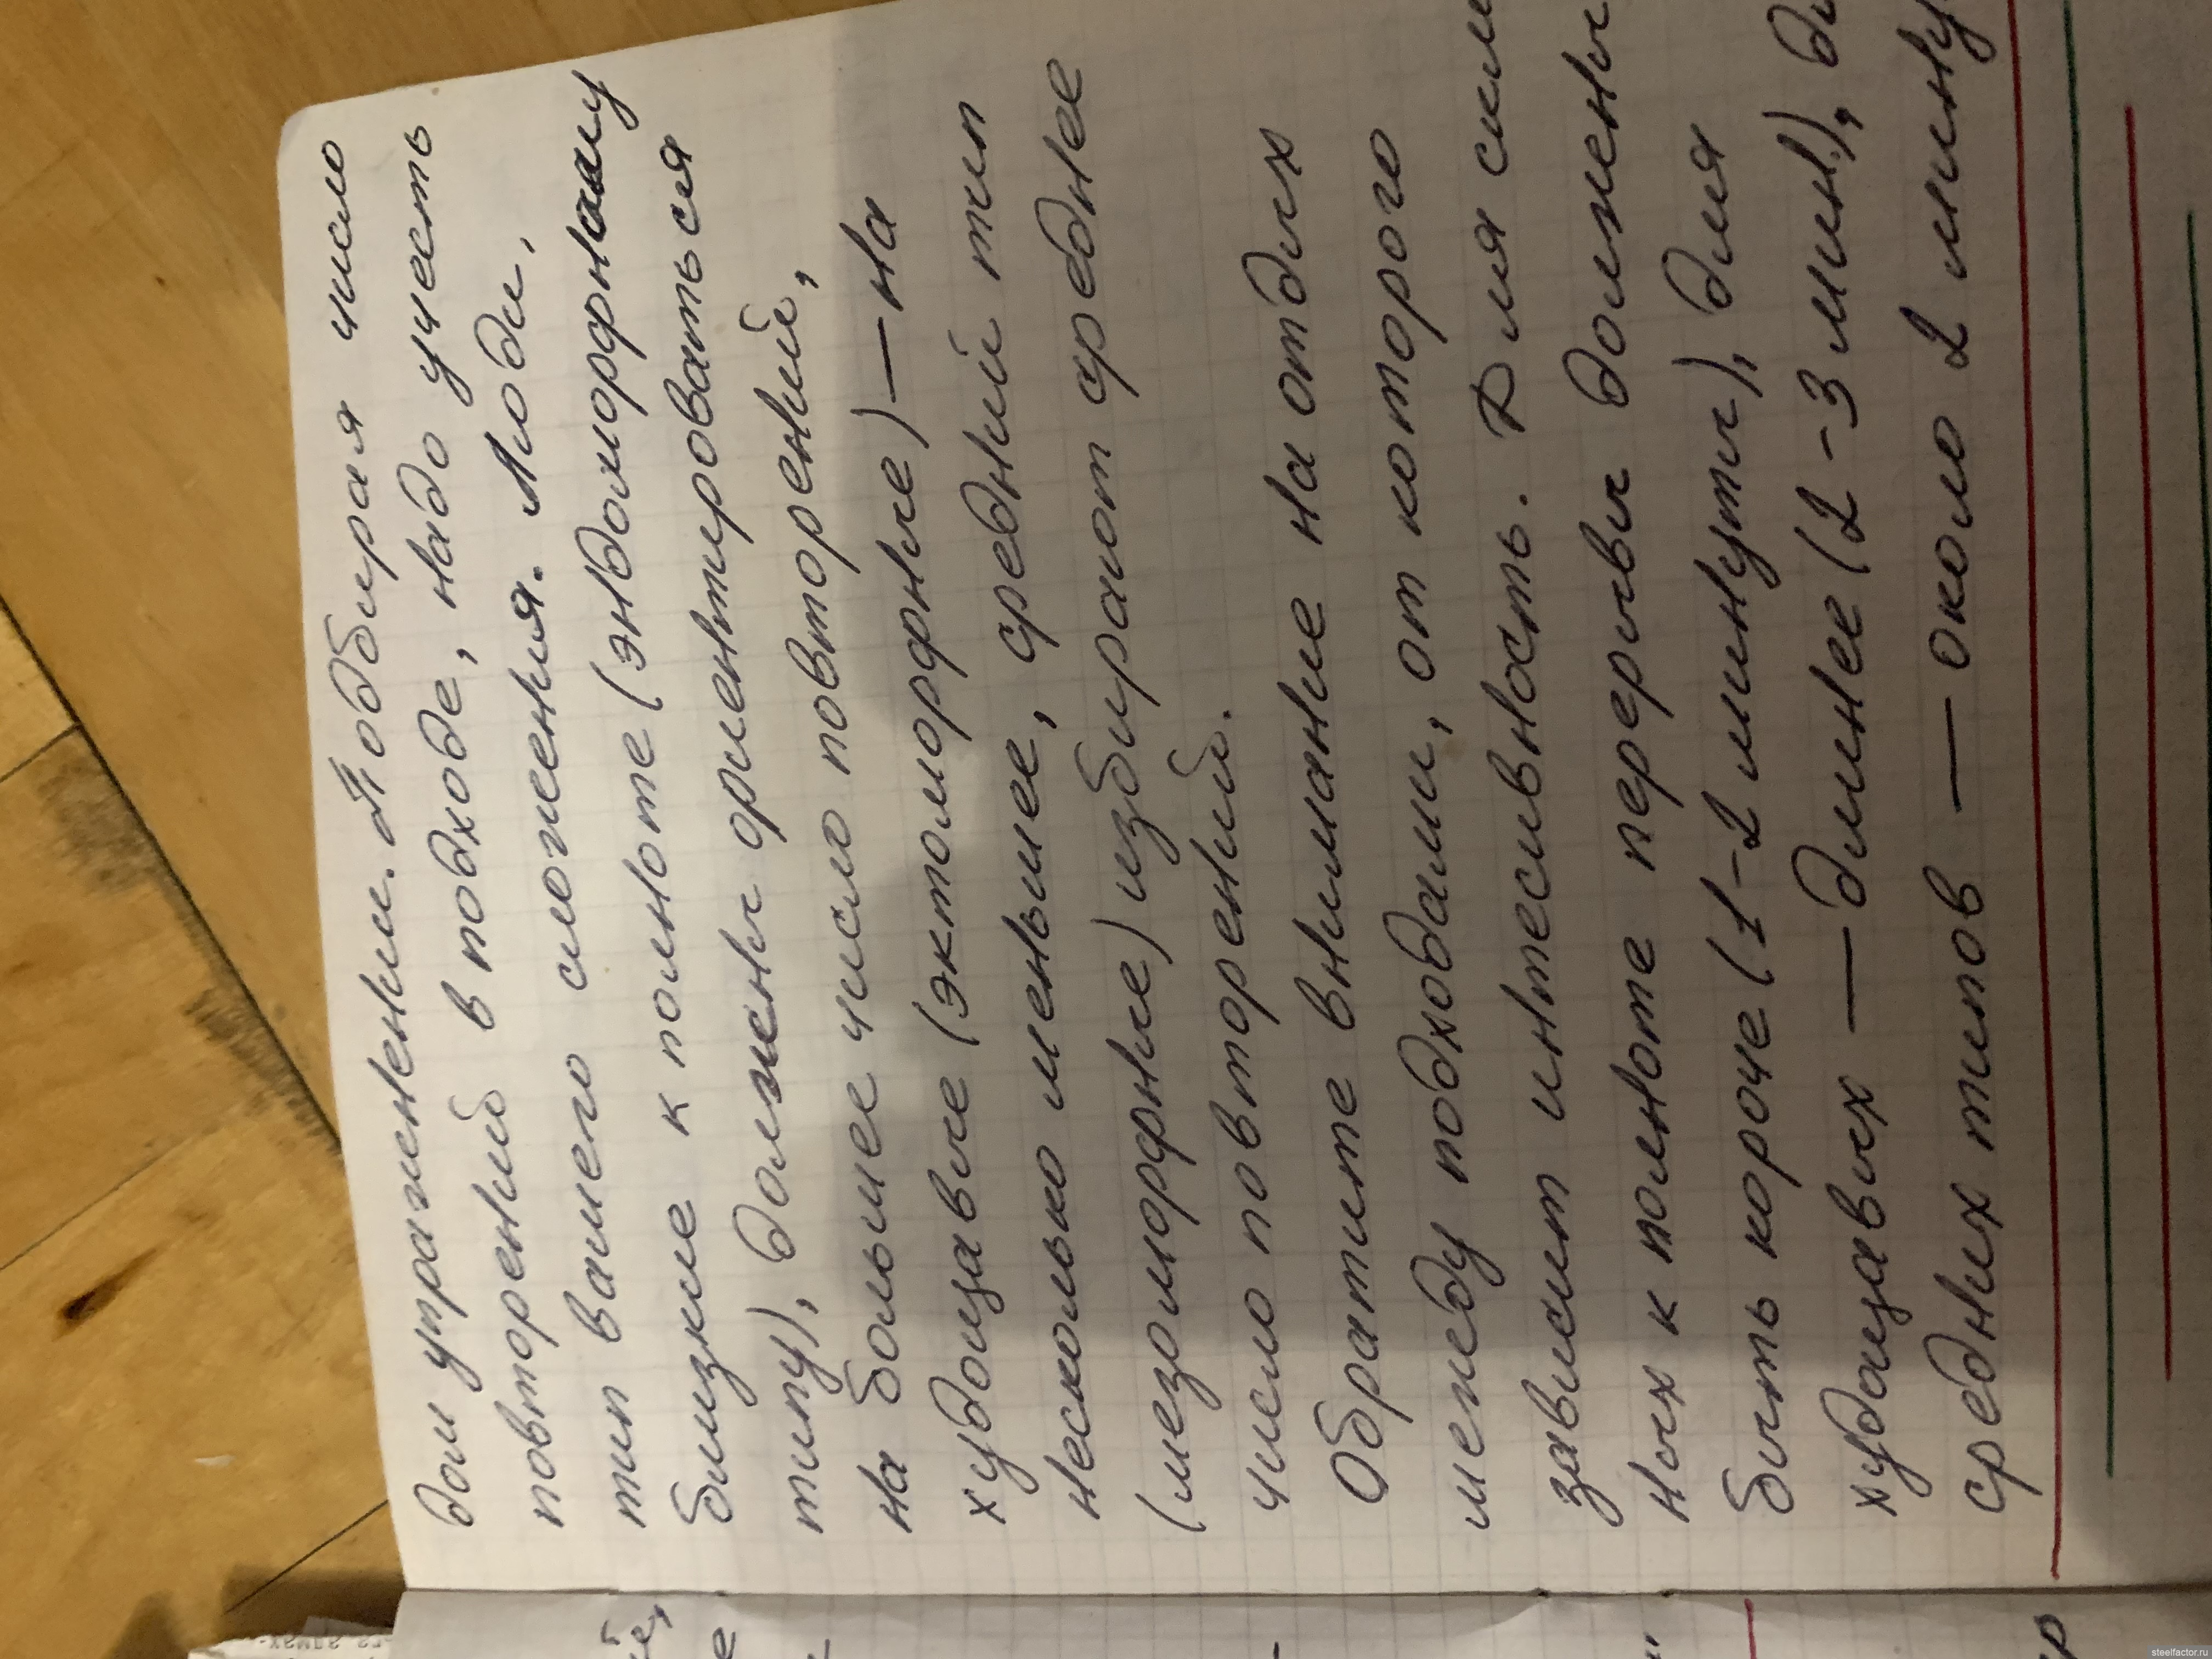 дом упражнении. Подбирая число
повторений в подходе, надо учесть
тип вашего сложения. Люди,
близкие к полноте (эндоморфному
типу), должны ориентироваться
на большее число повторений,
худощавые (эктоморфные) — на
несколько меньшее, средний тип
(мезоморфные) избирают среднее
число повторений.
Обратите внимание на отдых
между подходами, от которого
зависит интесивность. Для скло
ных к полноте перерывы должены
быть короче (1-2 минуты), для
худощавых — длинее (2-3 мин), дл
средних типов — около 2 мину
steelfactor.ru